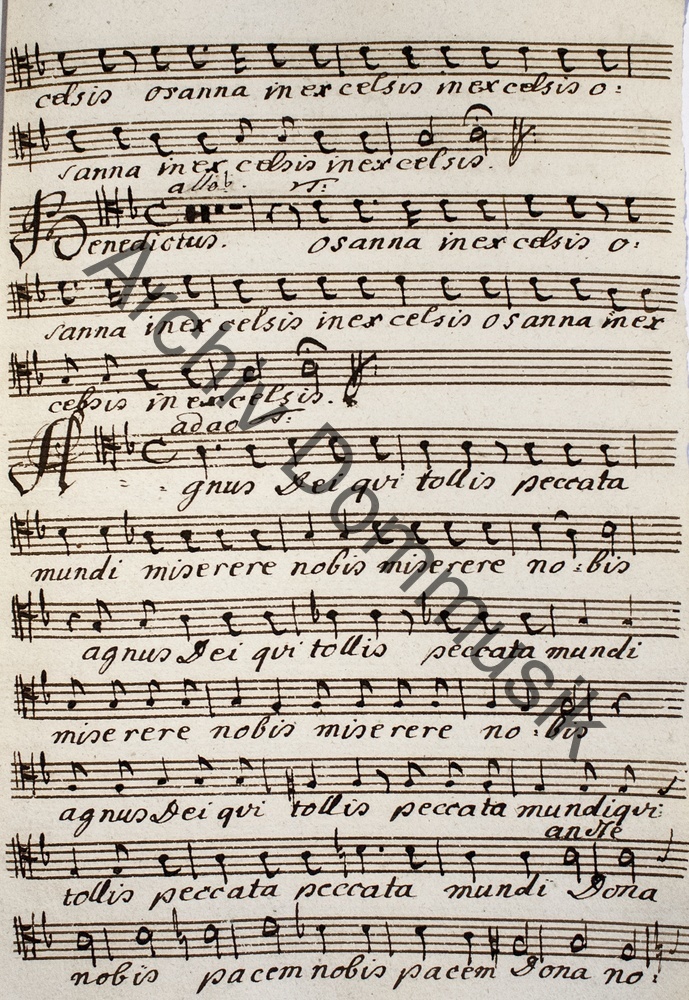 celsis osanna in excelsis in excelsis o:
sanna in excelsis in excelsis.
allo. T:
Benedictus. Osanna in excelsis o:
sanna in excelsis in excelsis osanna in ex
celsis in excelsis.
adao T:
Agnus Dei qvi tollis peccata
mundi miserere nobis miserere no:bis
agnus Dei qvi tollis peccata mundi
miserere nobis miserere no:bis
agnus Dei qvi tollis peccata mundi qvi
andte
tollis peccata peccata mundi Dona
nobis pacem nobis pacem Dona no:
Archiv Dommusik